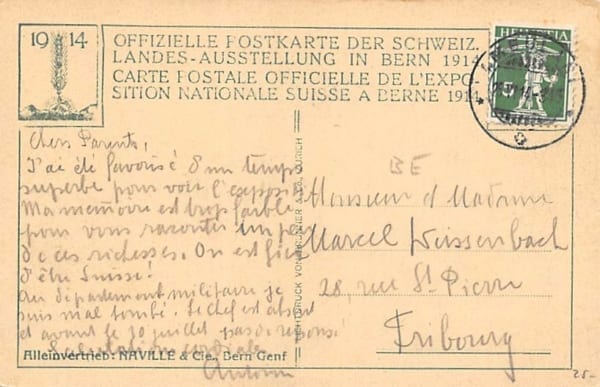 1914
OFFIZIELLE POSTKARTE DER SCHWEIZ.
LANDES-AUSSTELLUNG IN BERN 1914
CARTE POSTALE OFFICIELLE DE L'EXPO
SITION NATIONALE SUISSE A BERNE 1914
HELVETIA
Chers Parents,
J'ai été favorisé d'un temps
superbe pour voir l'exposit
Ma memoire est trop faible
pour vous raconter un peu
de ces richesses. On est fier
d'être Suisse!
Au département militaire je
suis mal tombé. Le chef est absent
et avant le 20 juillet pas de réponse
cordiale
BE
Monsieur & Madame
Marcel Weissenbach
28, rue St Pierre
Fribourg
Alleinvertrieb: NAVILLE & Cie., Bern Genf
25.-